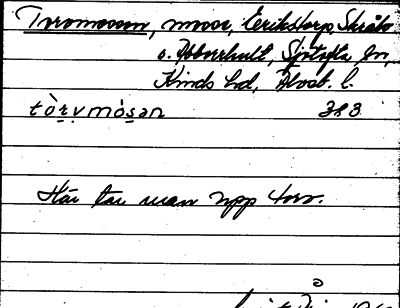 Torvmossen, mosse, Erikstorp, Skråbo
o. Abborrhult, Sjötofta sn,
Kinds hd, Älvsb. l.
tòṛvmòsan 383
Här tar man upp torv.